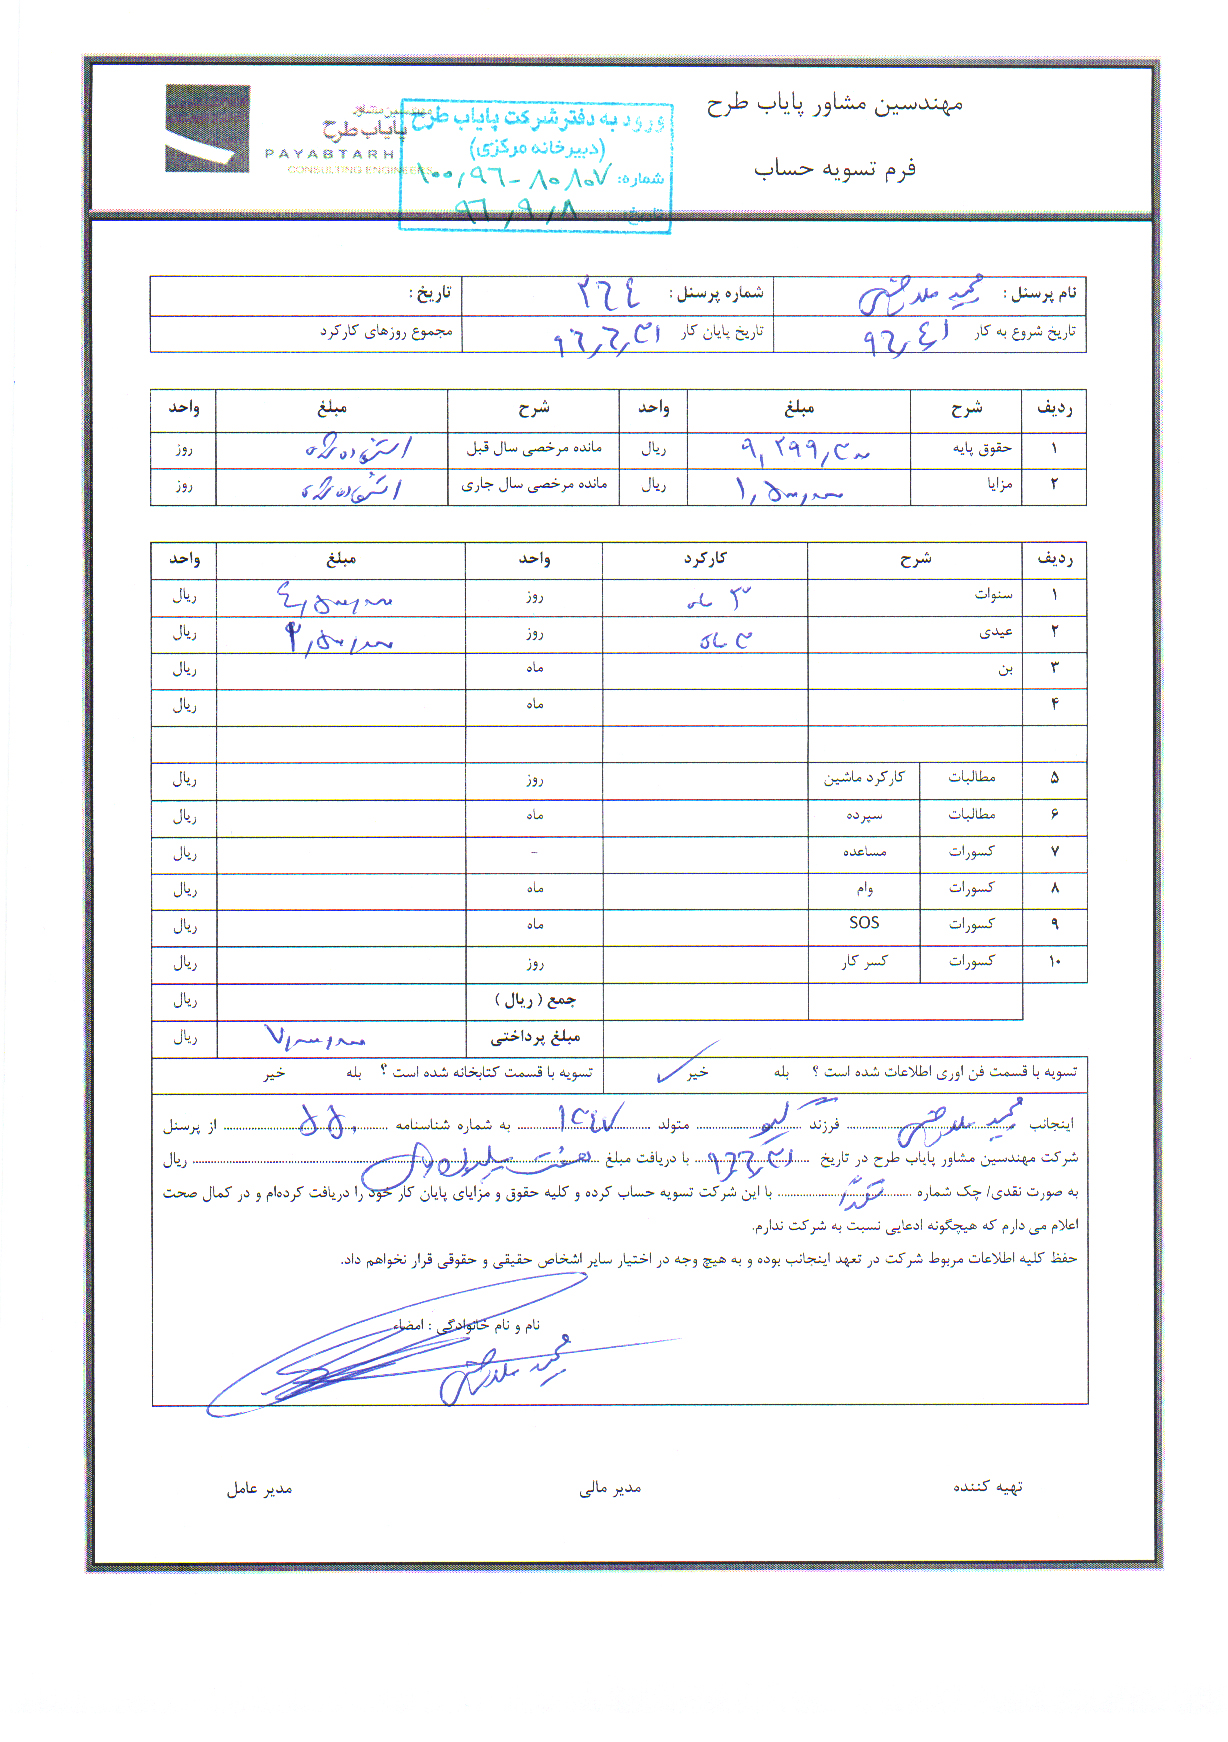 مهندسین مشاور پایاب طرح
فرم تسویه حساب
مهندسین مشاور
پایاب طرح
PAYABTARH
CONSULTING ENGINEERS
ورود به دفتر شرکت پایاب طرح
(دبیرخانه مرکزی)
شماره: ۱۰۰,۹۶-۸۰۸۰۷
تاریخ: ۹۶/۹/۸
نام پرسنل : مجید شماره پرسنل : ۲۶۴ تاریخ :
تاریخ شروع به کار ۹۶,۴,۱ تاریخ پایان کار ۹۶,۶,۳۱ مجموع روزهای کارکرد
ردیف شرح مبلغ واحد شرح مبلغ واحد
۱ حقوق پایه ۹,۲۹۹,۳۰۰ ریال مانده مرخصی سال قبل استفاده شده روز
۲ مزایا ۱,۵۰۰,۰۰۰ ریال مانده مرخصی سال جاری استفاده شده روز
ردیف شرح کارکرد واحد مبلغ واحد
۱ سنوات ۳ ماه روز ۴,۵۰۰,۰۰۰ ریال
۲ عیدی ۳ ماه روز ۲,۵۰۰,۰۰۰ ریال
۳ بن ماه ریال
۴ ماه ریال
۵ مطالبات کارکرد ماشین روز ریال
۶ مطالبات سپرده ماه ریال
۷ کسورات مساعده - ریال
۸ کسورات وام ماه ریال
۹ کسورات SOS ماه ریال
۱۰ کسورات کسر کار روز ریال
جمع ( ریال ) ریال
مبلغ پرداختی ۷,۰۰۰,۰۰۰ ریال
تسویه با قسمت فن آوری اطلاعات شده است ؟ بله خیر ✓ تسویه با قسمت کتابخانه شده است ؟ بله خیر
اینجانب مجید فرزند گیو متولد ۱۳۴۷ به شماره شناسنامه ۵۵۰ از پرسنل
شرکت مهندسین مشاور پایاب طرح در تاریخ ۹۶,۶,۳۱ با دریافت مبلغ هفت میلیون ریال ریال
به صورت نقدی/ چک شماره نقداً با این شرکت تسویه حساب کرده و کلیه حقوق و مزایای پایان کار خود را دریافت کرده‌ام و در کمال صحت
اعلام می دارم که هیچگونه ادعایی نسبت به شرکت ندارم.
حفظ کلیه اطلاعات مربوط شرکت در تعهد اینجانب بوده و به هیچ وجه در اختیار سایر اشخاص حقیقی و حقوقی قرار نخواهم داد.
نام و نام خانوادگی : امضاء
مجید
تهیه کننده مدیر مالی مدیر عامل